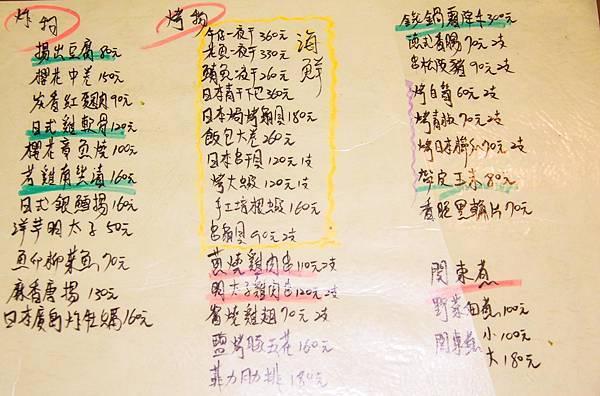 炸物
揚出豆腐 80元
櫻花中卷 150元
炭香紅麴肉 90元
日式雞軟骨 120元
櫻花章魚燒 100元
若雞唐雙漬 160元
日式銀鱈揚 160元
洋芋明太子 50元
魚卵柳葉魚 70元
麻香唐揚 130元
日本廣島炸牡蠣 160元
烤物
海鮮
午仔一夜干 360元
花魚一夜干 330元
鯖魚一夜干 260元
日本青干下巴 360元
日本海烤鮑貝 180元
飯包大卷 260元
日本串干貝 120元 1支
烤大蝦 120元 1支
手工塔模蝦 160元
串鮑貝 90元 2支
蔥燒雞肉串 110元 2支
明太子雞肉串 120元 2支
醬燒雞翅 70元 2支
鹽烤豚五花 160元
菲力肋排 180元
鐵鍋霜降牛 300元
70元 2支
串松阪豬 90元 2支
烤白筍 60元 2支
烤青椒 70元 2支
烤日本 70元 2支
帶皮玉米 80元
香脆黑輪片 70元
関東煮
野菜田煮 100元
関東煮 小 100元
大 180元